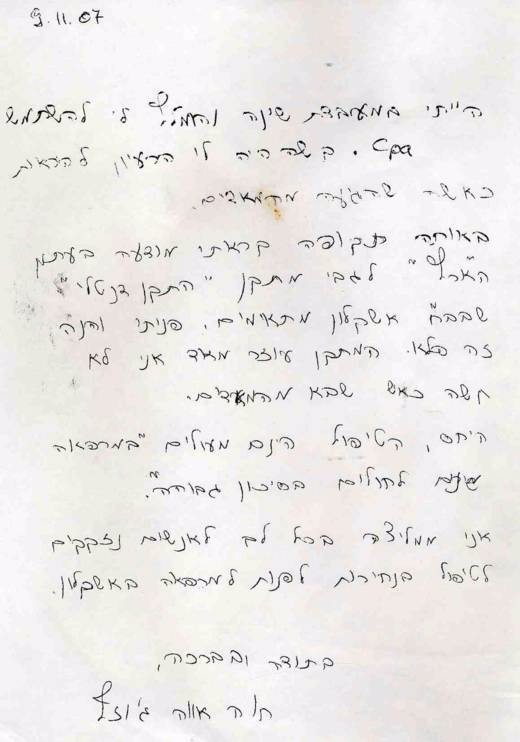 9.11.07
הייתי במעבדת שינה והמליץ לי להשתמש
Cpa. קשה היה לי הרעיון להראות
כאשה שהגיעה מהמאדים.
באותה תקופה קראתי מודעה בעתון
"הארץ" לגבי מתקן "התקן דנטלי"
שבבי"ח אשקלון מתאימים. פניתי והנה
זה פלא. המתקן עוזר מאד אני לא
חשה כאש שבא מהמאדים.
היחס, הטיפול הינם מעולים "במרפאה
לחולים בסיכון גבוהה".
אני ממליצה בכל לב לאנשים נזקקים
לטיפול בנחירות לפנות למרפאה באשקלון.
בתודה ובברכה,
חוה